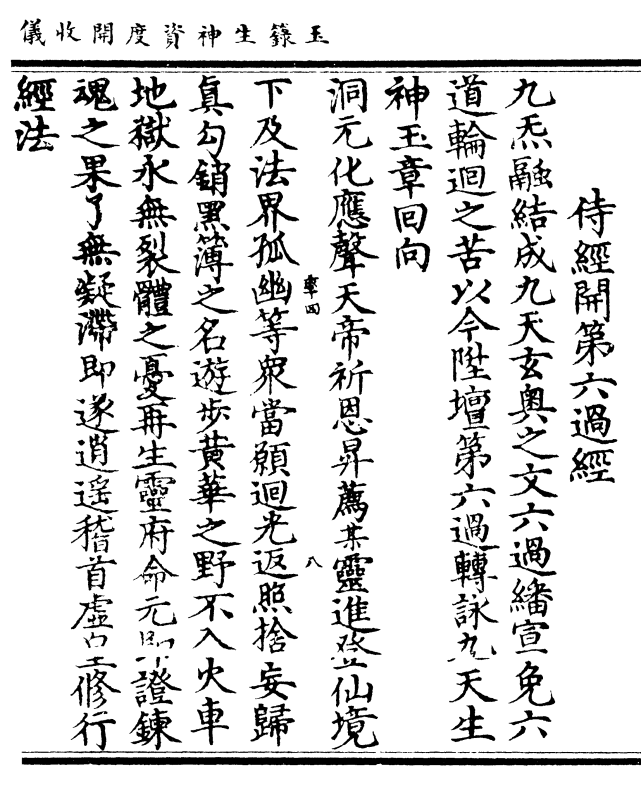 玉籙生神資度開收儀
侍經開第六過經
九炁融結成九天玄奧之文六過繙宣免六
道輪迴之苦以今陞壇第六過轉詠九天生
神玉章回向
洞元化應聲天帝祈恩昇薦某靈進登仙境
下及法界孤幽等衆當願迴光返照捨妄歸
眞勾銷黑簿之名遊步黃華之野不入火車
地獄永無裂體之憂再生靈府命元即證鍊
魂之果了無疑滯即遂逍遥稽首虛皇修行
經法
章四
八